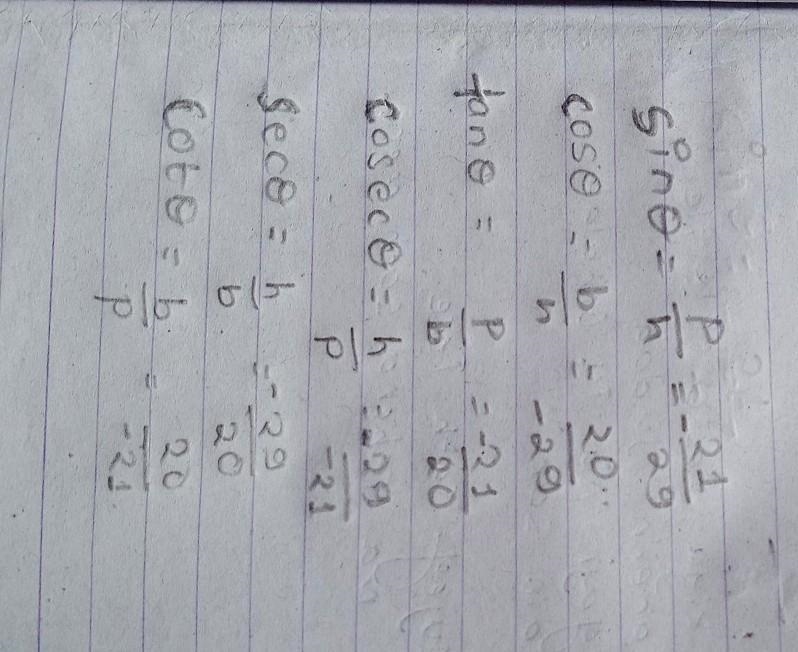 sinθ = p/h = -21/29
cosθ = b/h = 20/-29
tanθ = p/b = -21/20
cosecθ = h/p = -29/-21
secθ = h/b = -29/20
cotθ = b/p = 20/-21